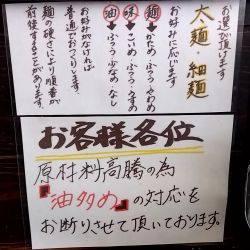 お選び頂けます。
太麺・細麺
お好みに応じます
麺➡かため・ふつう・やわめ
味➡こいめ・ふつう・うすめ
油➡ふつう・少なめ・なし
お好みがなければ
普通でおつくりします。
麺の硬さにより順番が
前後することがあります。
お客様各位
原材料高騰の為
『油多め』の対応を
お断りさせて頂いております。